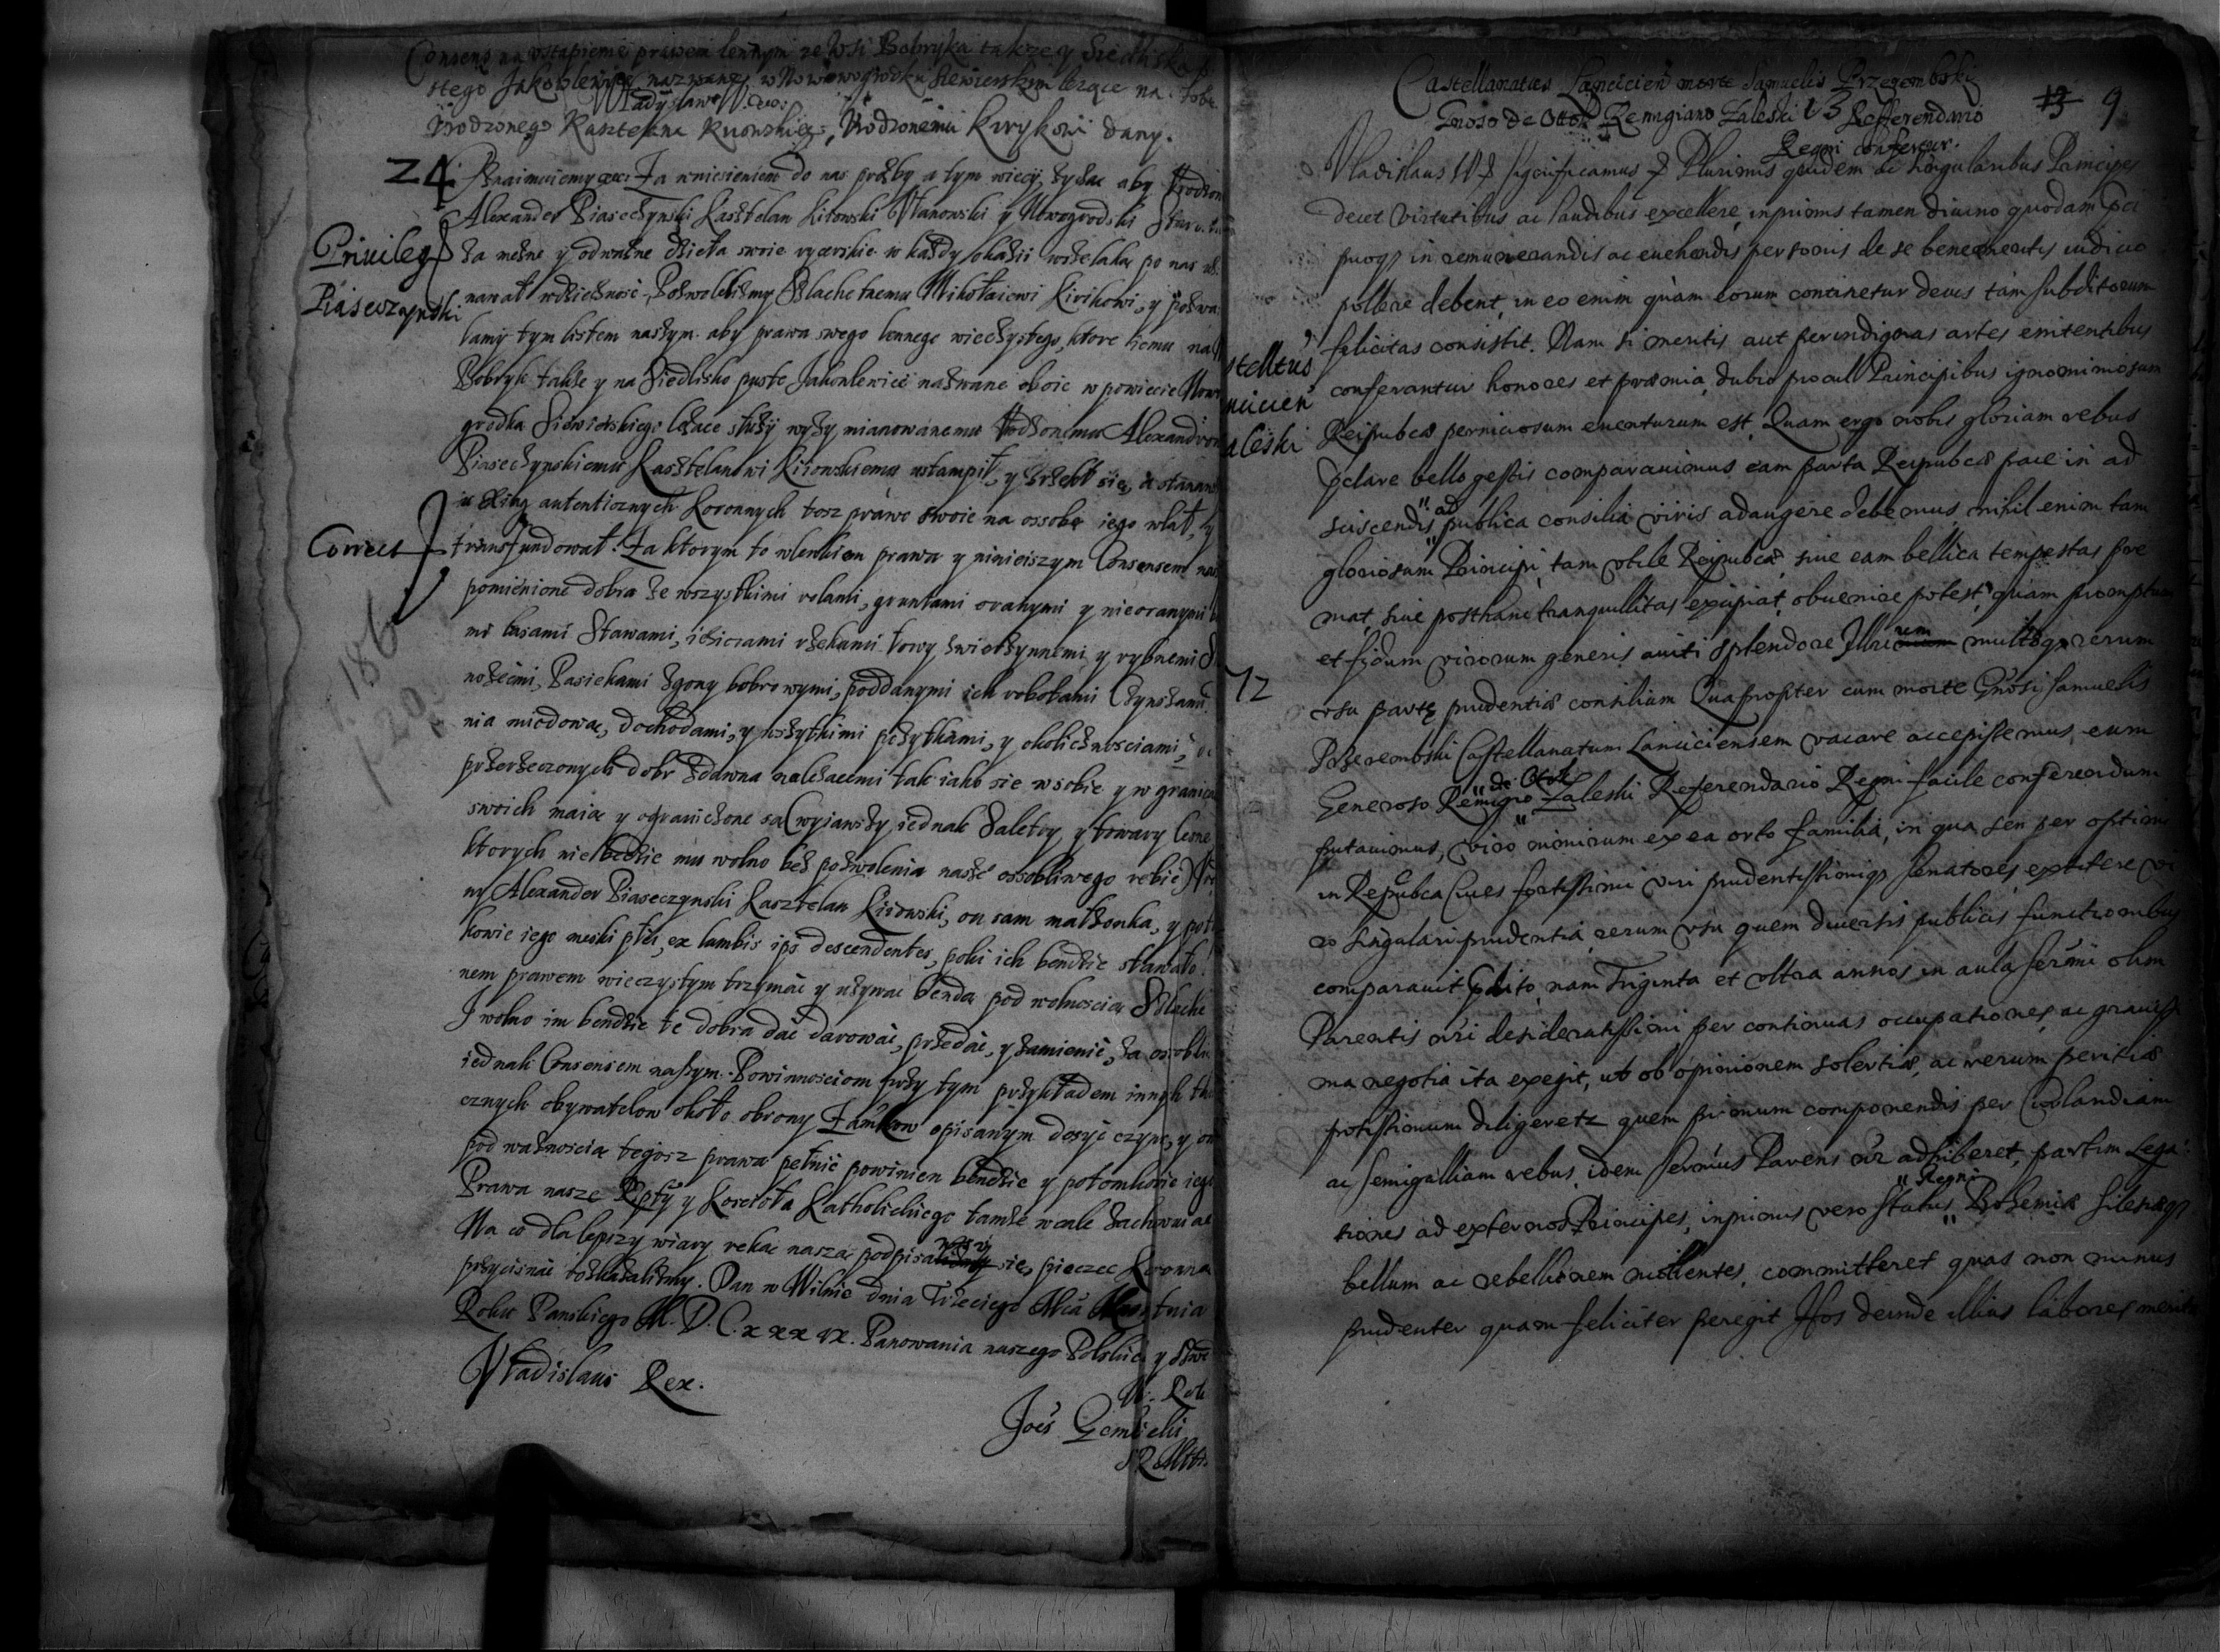 Consens na wstąpienie prawem lennym ze wsi Bobryka także y Siedliska
stego Jakowlewicz nazwany w Nowowogrodku Siewierskim lezące na
Władysław IV
Urodzonego Kasztelana Kiiowskiego, Urodzonemu Kirykowi dany.
24 Oznaimuiemy etc. Za wniesieniem do nas prozby a tym wiecy, zyczac aby Urodzon
Alexander Piaseczynski Kasztelan Kiiowski Ulanowski y Nowogrodski Staros
Privileg
Piaseczynski
za mezne y odwazne dzieła swoie rycerskie w kazdy okazii wszelaka po nas
nawał wdziecznosc, Pozwolelismy Szlachetnemu Mikołaiowi Kirikowi, y pozwa
lamy tym listem naszym. aby prawa swego lennego wieczystego, ktore iemu na
Bobryk takze y na Siedlisko puste Jakowlewicz nazwane oboie w powiecie Nowo
grodka Siewierskiego lezace słuzy wyzy mianowanemu Urodzonemu Alexandrow
Piaseczynskiemu Kasztelanowi Kiiowskiemu ustampił, y zrzekł się, a stanaw
u Xiąg autenticznych Koronnych tosz prawo swoie na ossobę iego wlał, y
Correct
transfundował. Za ktorym to wlewkiem prawa y ninieiszym Consensem nasz
pomienione dobra ze wszystkimi rolami, gruntami oranymi y nieoranymi
mi lasami Stawami, ieziorami rzekami łowy zwierzynnemi y rybnemi
nozęćmi, Pasiekami zgony bobrowymi, poddanymi ich robotami Czynszami
nia miodowa, dochodami, y wszytkimi pozytkami, y okolicznosciami,
przerzeczonych dobr zdawna nalezacemi tak iako sie w sobie y w granica
swoich maia y ograniczone sa (wyiawszy iednak Saletry y towary lesne
ktorych nie bedzie mu wolno bez pozwolenia nasze ossobliwego robic)
ny Alexander Piaseczynski Kasztelan Kiiowski, on sam małzonka, y pot
kowie iego męski płci, ex lumbis ips descendentes, poki ich bendzie stawało
nem prawem wieczystym trzymac y uzywac benda pod wolnoscia Szlache
I wolno im bendzie te dobra dac darowac, przedac, y zamienic, za ossobli
iednak Consensem naszym. Powinnosciom przy tym przykładem innych
cznych obywatelow około obrony Zamkow opisanym dosyc czynic, y on
pod waznoscia tegosz prawa pełnic powinien bendzie y potomkowie iego
Prawa nasze Rptey y Koscioła Katholickiego tamze wcale zachowuiac
Na co dla lepszy wiary reka nasza podpisalismy się, pieczec Koronna
przycisnac rozkazalismy. Dan w Wilnie dnia Trzeciego Mca
Roku Panskiego M. D. C. xxx ix. Panowania naszego Polskie y Szwe
Vladislaus Rex.
Joes Gembicki
Castellanatus Lanciciens morte Samuelis Przerembski
Gnoso de Otok Remigiano Zaleski 13 Refferendario 9
Regni confertur.
Vladislaus IV Significamus Plurimis quidem ac singularibus Principes
decet virtutibus ac laudibus excellere, inprimis tamen diuino quodam
in remunerandis ac euehendis personis de se benemeritis iudicio
pollere debent, in eo enim quam eorum continetur decus tam subditorum
stellus
ncicien
aleski
felicitas consistit. Nam si meritis aut per indignas artes enitentibus
conferantur honores et præmia, dubio procul Principibus ignominiosum
Reipubcæ perniciosum euenturum est. Quam ergo nobis gloriam rebus
pclare bello gestis comparauimus eam parta Reipubcæ pace in ad
sciscendis ad publica consilia viris adaugere debemus, nihil enim tam
gloriosum Principi, tam vtile Reipubcæ, siue eam bellica tempestas pre
mat, siue posthanc tranquillitas excipiat, obuenire potest, quam promptum
et fidum virorum generis auiti splendore Illurium multoqz rerum
12
vsu partę prudentiæ consilium Quapropter cum morte Gnosi Samuelis
Przerembski Castellanatum Lanciciensem vacare accepissemus, eum
Generoso Remigio de Otok Zaleski Referendario Regni facile conferendum
putauimus, viro nimirum ex ea orto familia, in qua semper optimi
in Repubca Ciues fortissimi viri prudentissimiqz Senatores extitere
ro singulari prudentia, rerum vsu quem diuersis publicis functionibus
comparauit pdito, nam Triginta et vltra annos in aula Sermi olim
Parentis nri desideratissimi per continuas occupationes ac grauissi
ma negotia ita exegit, ut ob opinionem solertiæ, ac rerum peritiæ
potissimum diligeretz quem primum componendis per Curlandiam
ac Semigalliam rebus, idem Sermus Parens nr adhiberet, partim Lega
tiones ad externos Principes, inprimis vero Status Regni Bohemiæ Silesiæqz
bellum ac rebellionem molientes, committeret quas non minus
prudenter quam feliciter peregit Hos deinde illius labores merita